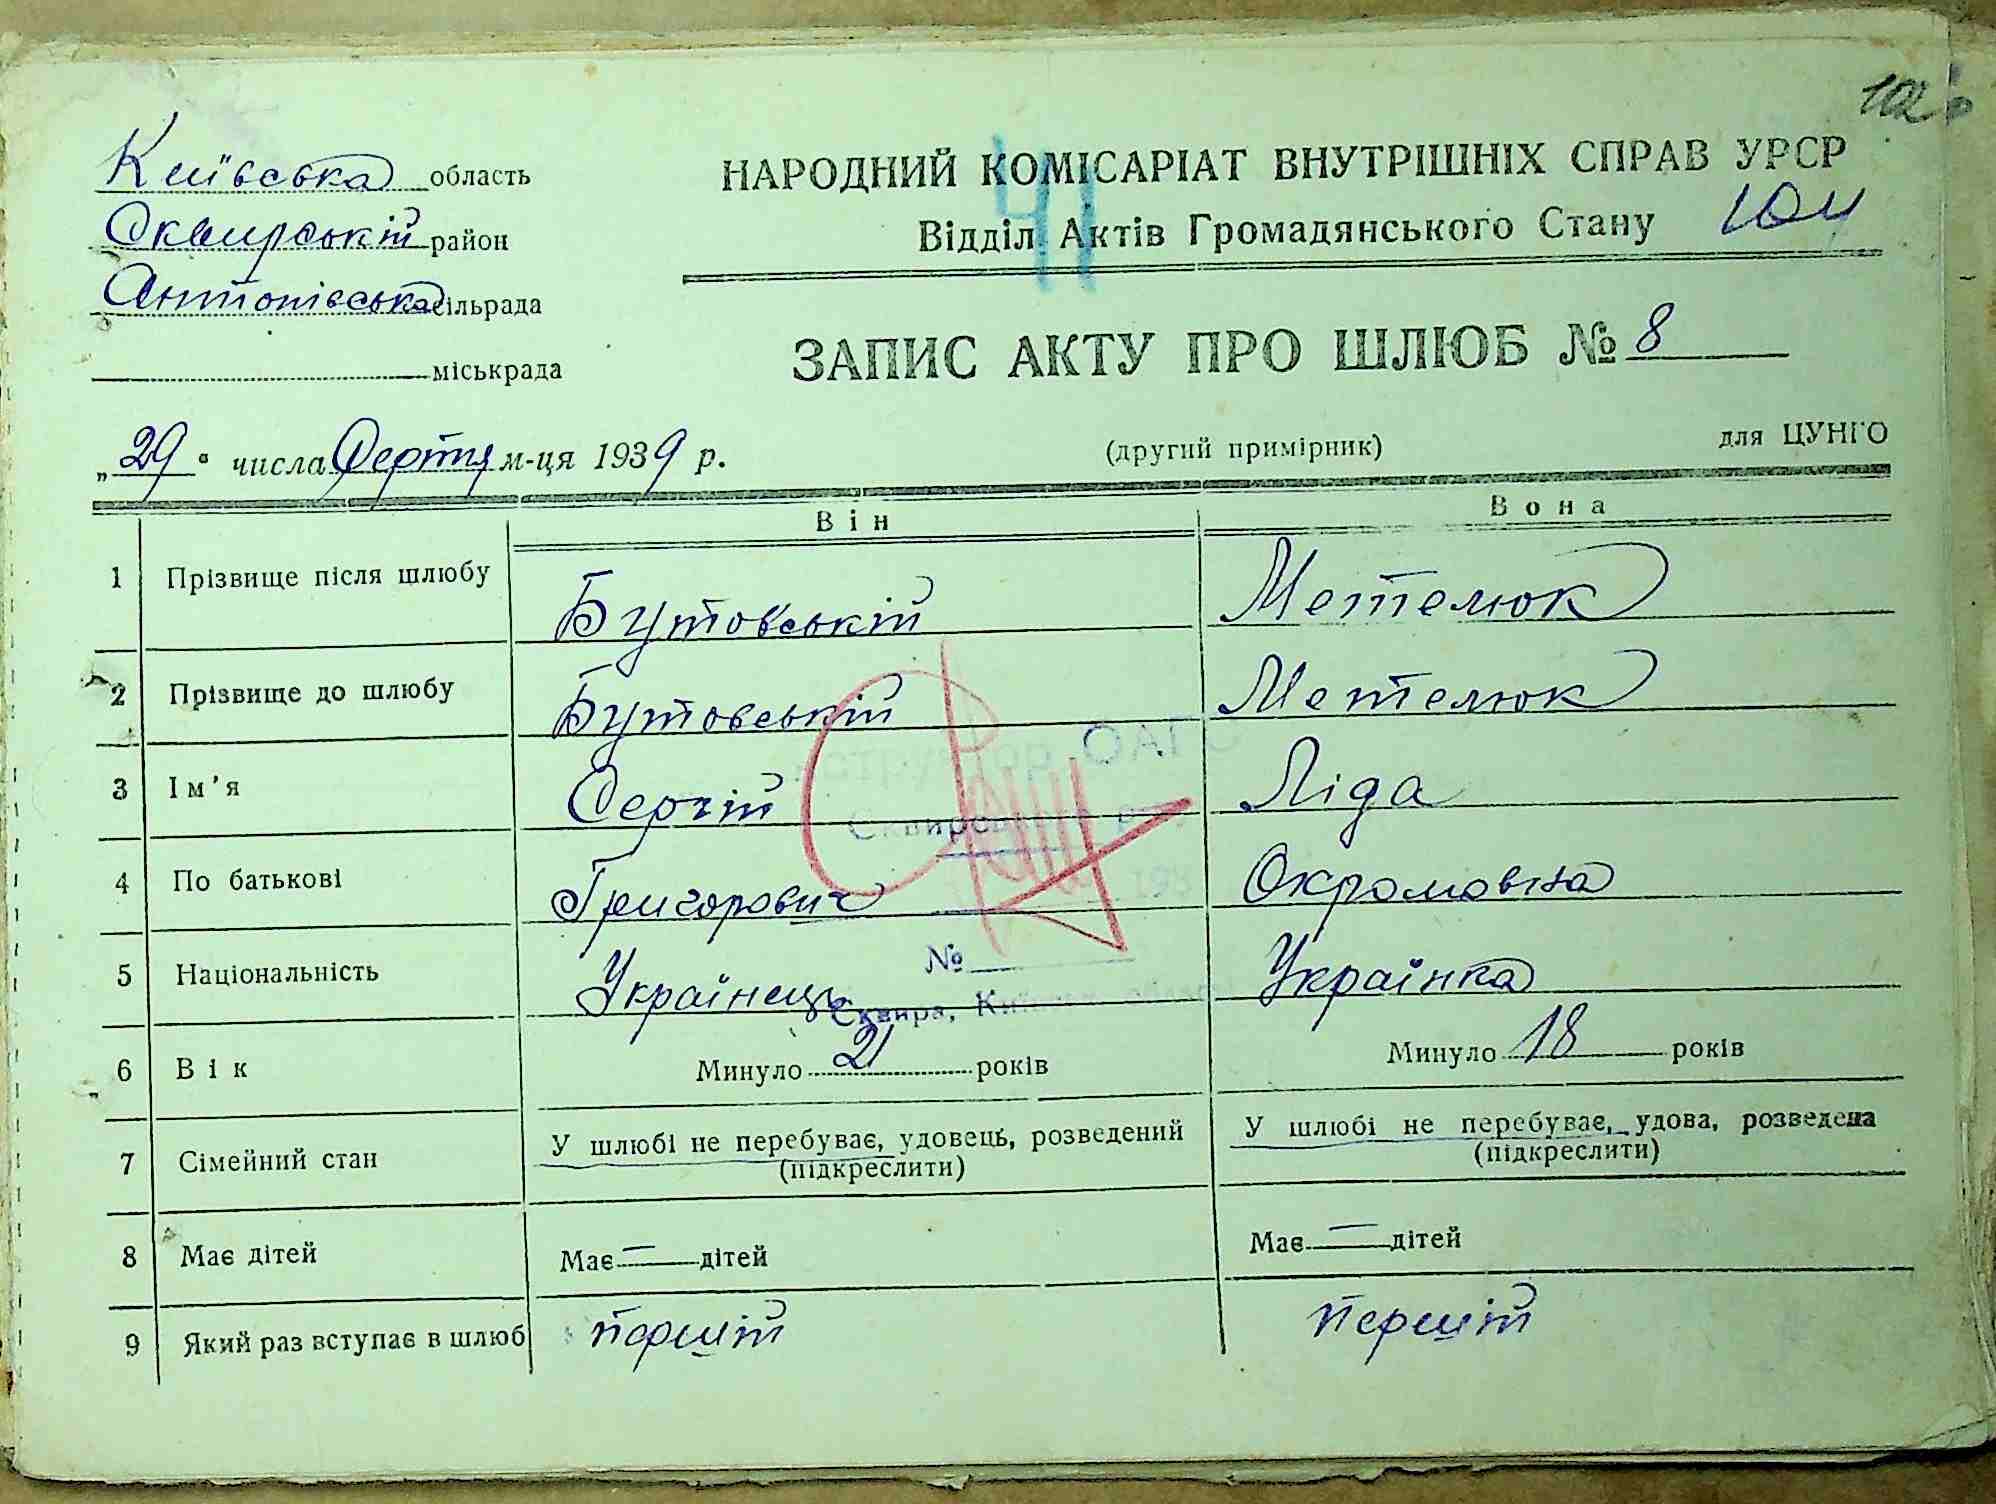 102
Київська область
Сквирській район
Антонівська сільрада
міськрада
НАРОДНИЙ КОМІСАРІАТ ВНУТРІШНІХ СПРАВ УРСР
Відділ Актів Громадянського Стану
104
41
ЗАПИС АКТУ ПРО ШЛЮБ № 8
„29“ числа Серпня м-ця 1939 р.
(другий примірник)
для ЦУНГО
Він Вона
1 Прізвище після шлюбу Бутовській Метелюк
2 Прізвище до шлюбу Бутовській Метелюк
3 Ім'я Сергій Ліда
4 По батькові Григорович Охромовна
5 Національність Українець Українка
6 Вік Минуло 21 років Минуло 18 років
7 Сімейний стан У шлюбі не перебуває, удовець, розведений (підкреслити) У шлюбі не перебуває, удова, розведена (підкреслити)
8 Має дітей Має — дітей Має — дітей
9 Який раз вступає в шлюб першій першій
ОАГС
№
Сквира,